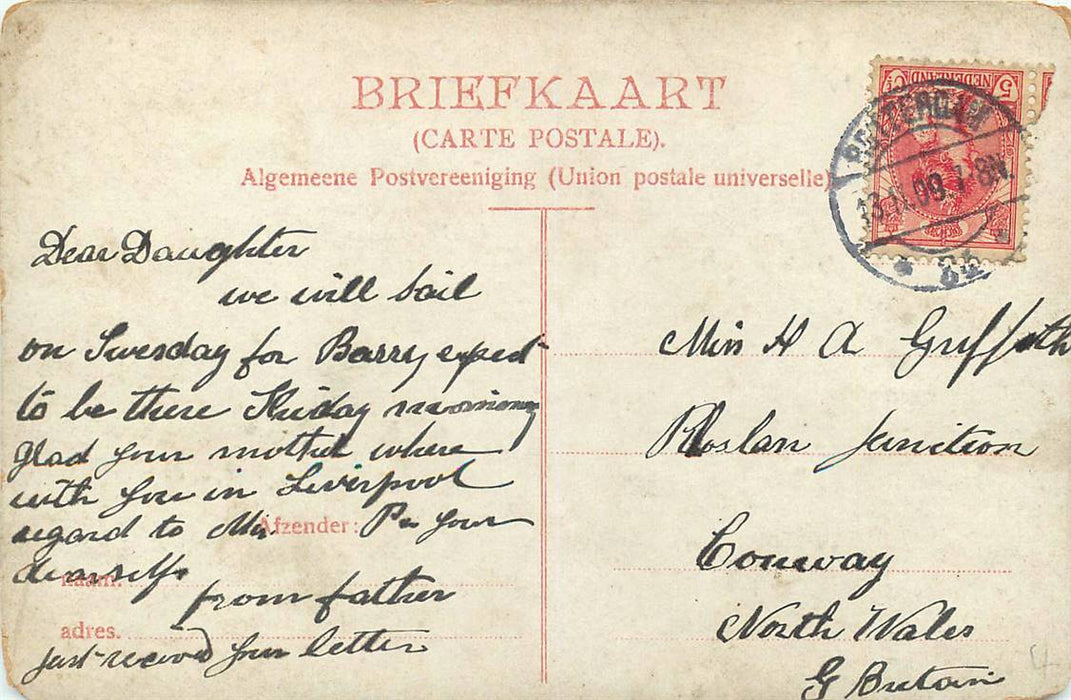 BRIEFKAART
(CARTE POSTALE).
Algemeene Postvereeniging (Union postale universelle)
5 Ct NEDERLAND
ROTTERDAM
13.11.09 7-8N.
Dear Daughter
we will sail
on Tuesday for Barry expect
to be there Friday morning
glad your mother where
with you in Liverpool
regard to Mrs P & your
dearself
from father
just received your letter
Afzender:
naam.
adres.
Miss H A Griffith
Roslan Junction
Conway
North Wales
G Britain
4